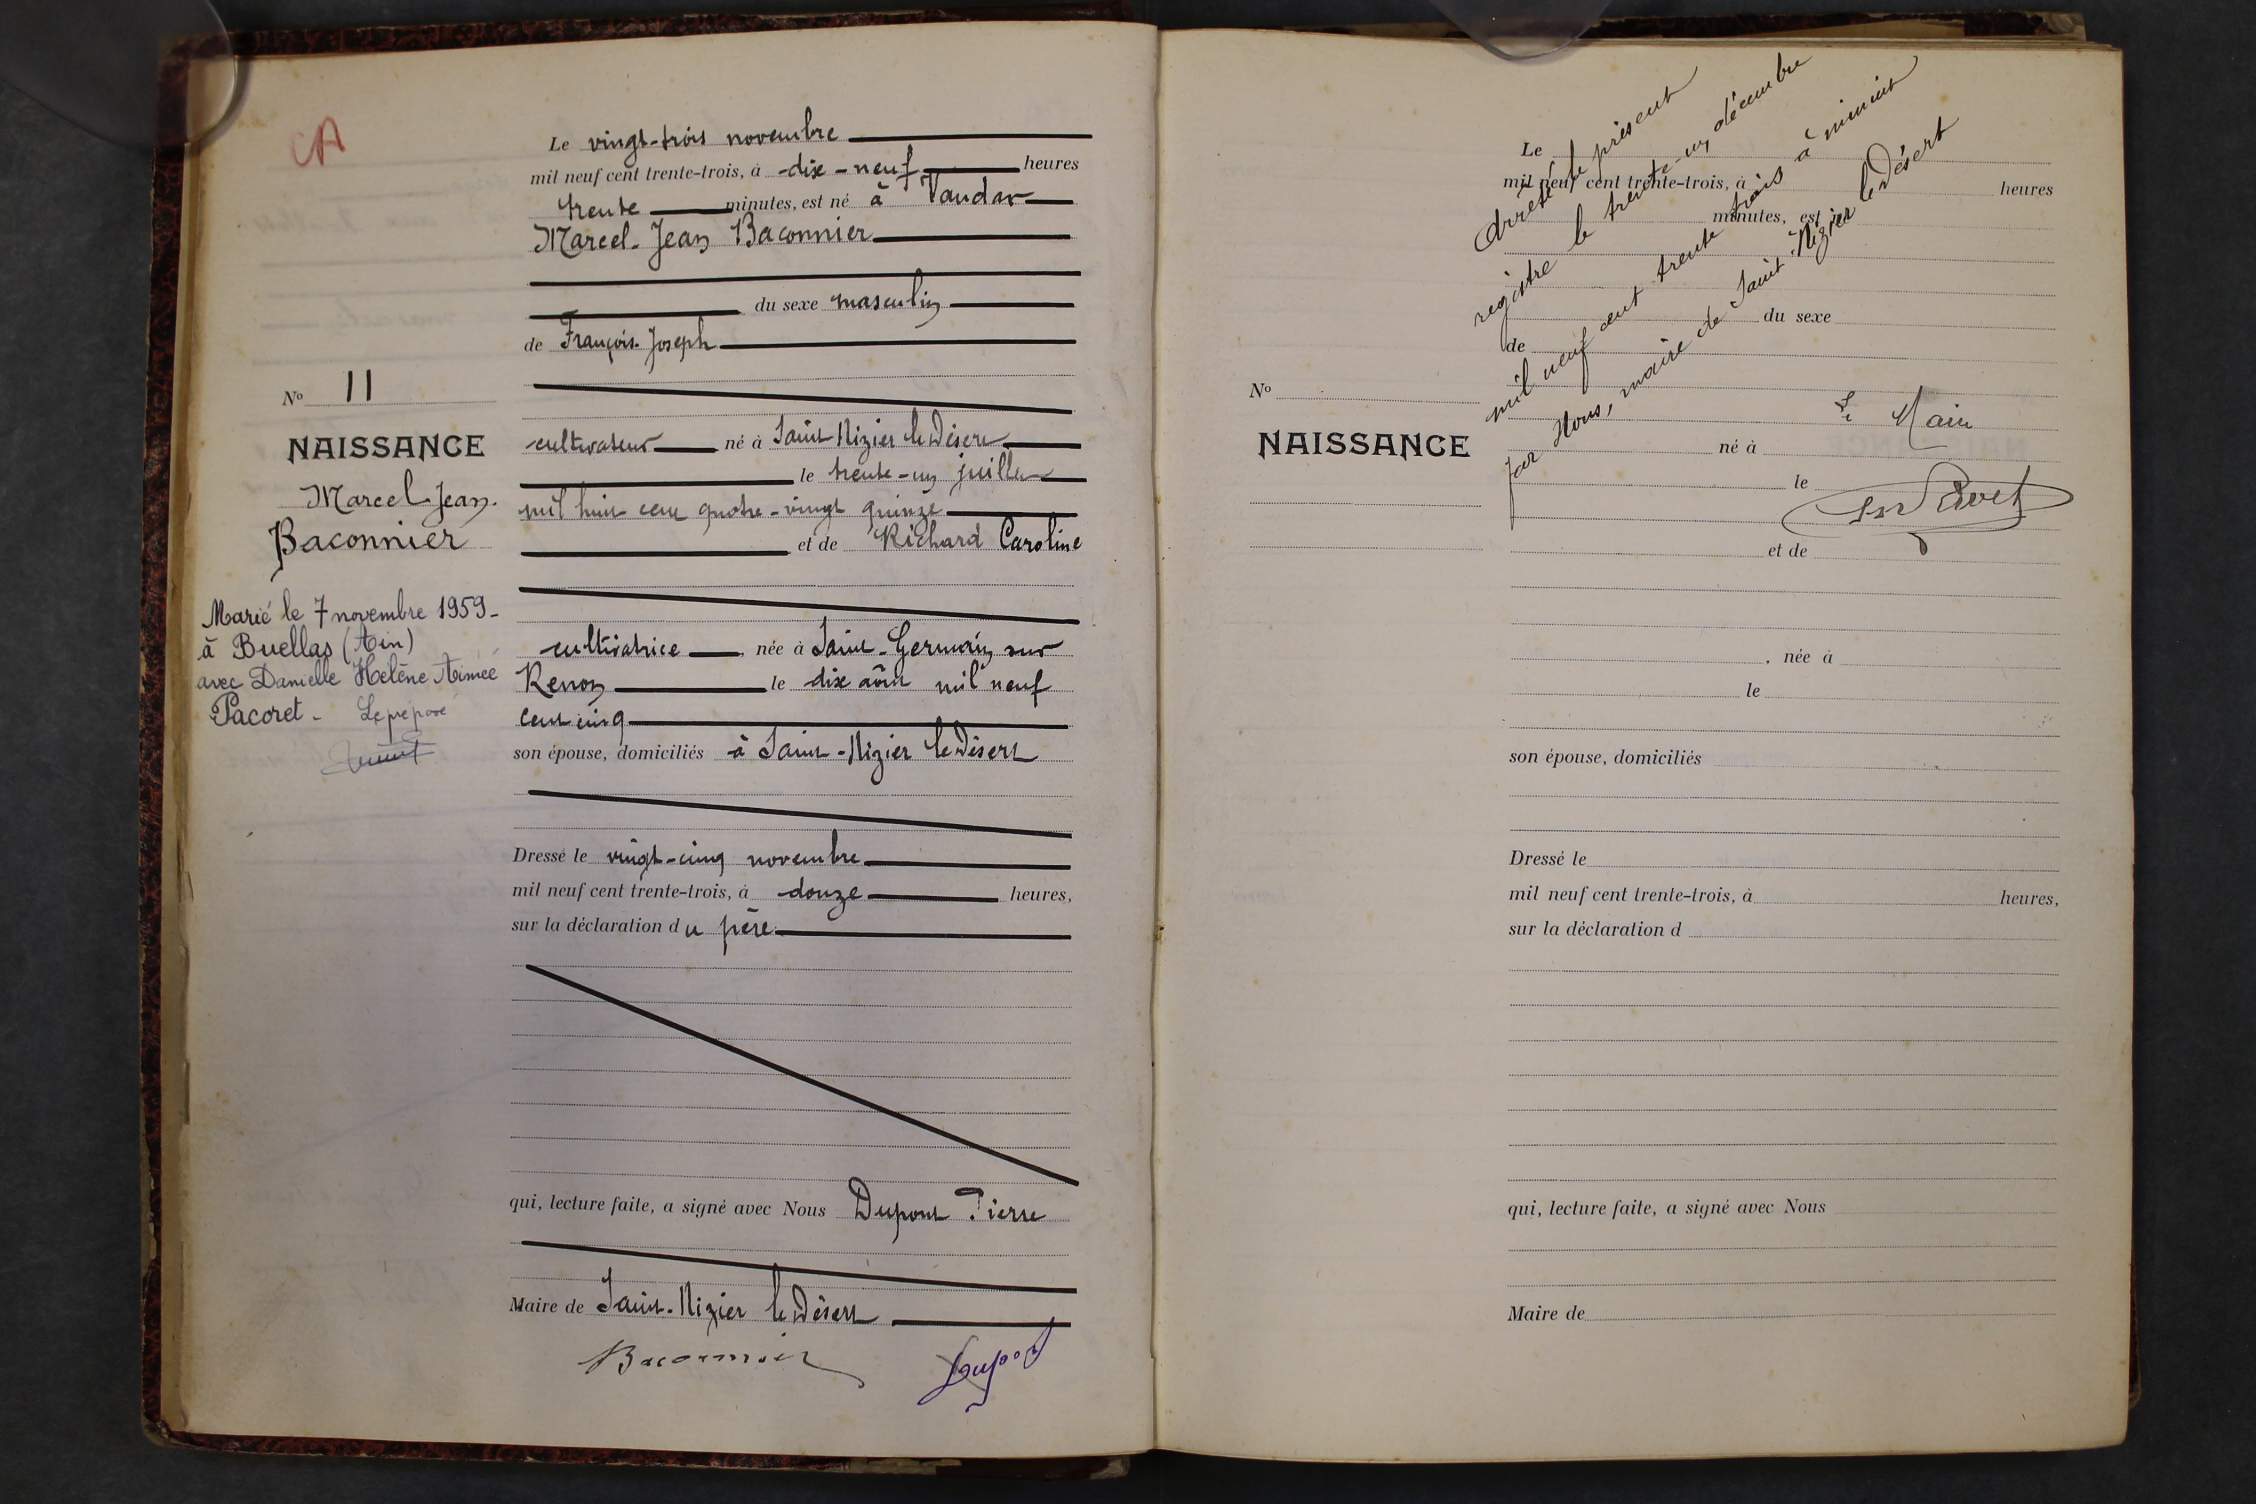 CA
Le vingt-trois novembre
mil neuf cent trente-trois, à dix-neuf heures
trente minutes, est né à Vaudan
Marcel-Jean Baconnier
du sexe masculin
de François-Joseph
No 11
NAISSANCE
Marcel-Jean
Baconnier
cultivateur né à Saint Nizier le Désert
le trente-un juillet
mil huit cent quatre-vingt quinze
et de Richard Caroline
Marié le 7 novembre 1959-
à Buellas (Ain)
avec Danielle Hélène Aimée
Pacoret - Le préposé
cultivatrice née à Saint-Germain sur
Renon le dix août mil neuf
cent cinq
son épouse, domiciliés à Saint-Nizier le Désert
Dressé le vingt-cinq novembre
mil neuf cent trente-trois, à douze heures,
sur la déclaration du père
qui, lecture faite, a signé avec Nous Dupont Pierre
Maire de Saint-Nizier le Désert
Baconnier
Dupont
Arrêté le présent
registre le trente-un décembre
mil neuf cent trente trois à minuit
par Nous, maire de Saint Nizier le Désert
Le Maire
Le
mil neuf cent trente-trois, à heures
minutes, est né
du sexe
de
No
NAISSANCE
né à
le
et de
, née à
le
son épouse, domiciliés
Dressé le
mil neuf cent trente-trois, à heures,
sur la déclaration d
qui, lecture faite, a signé avec Nous
Maire de